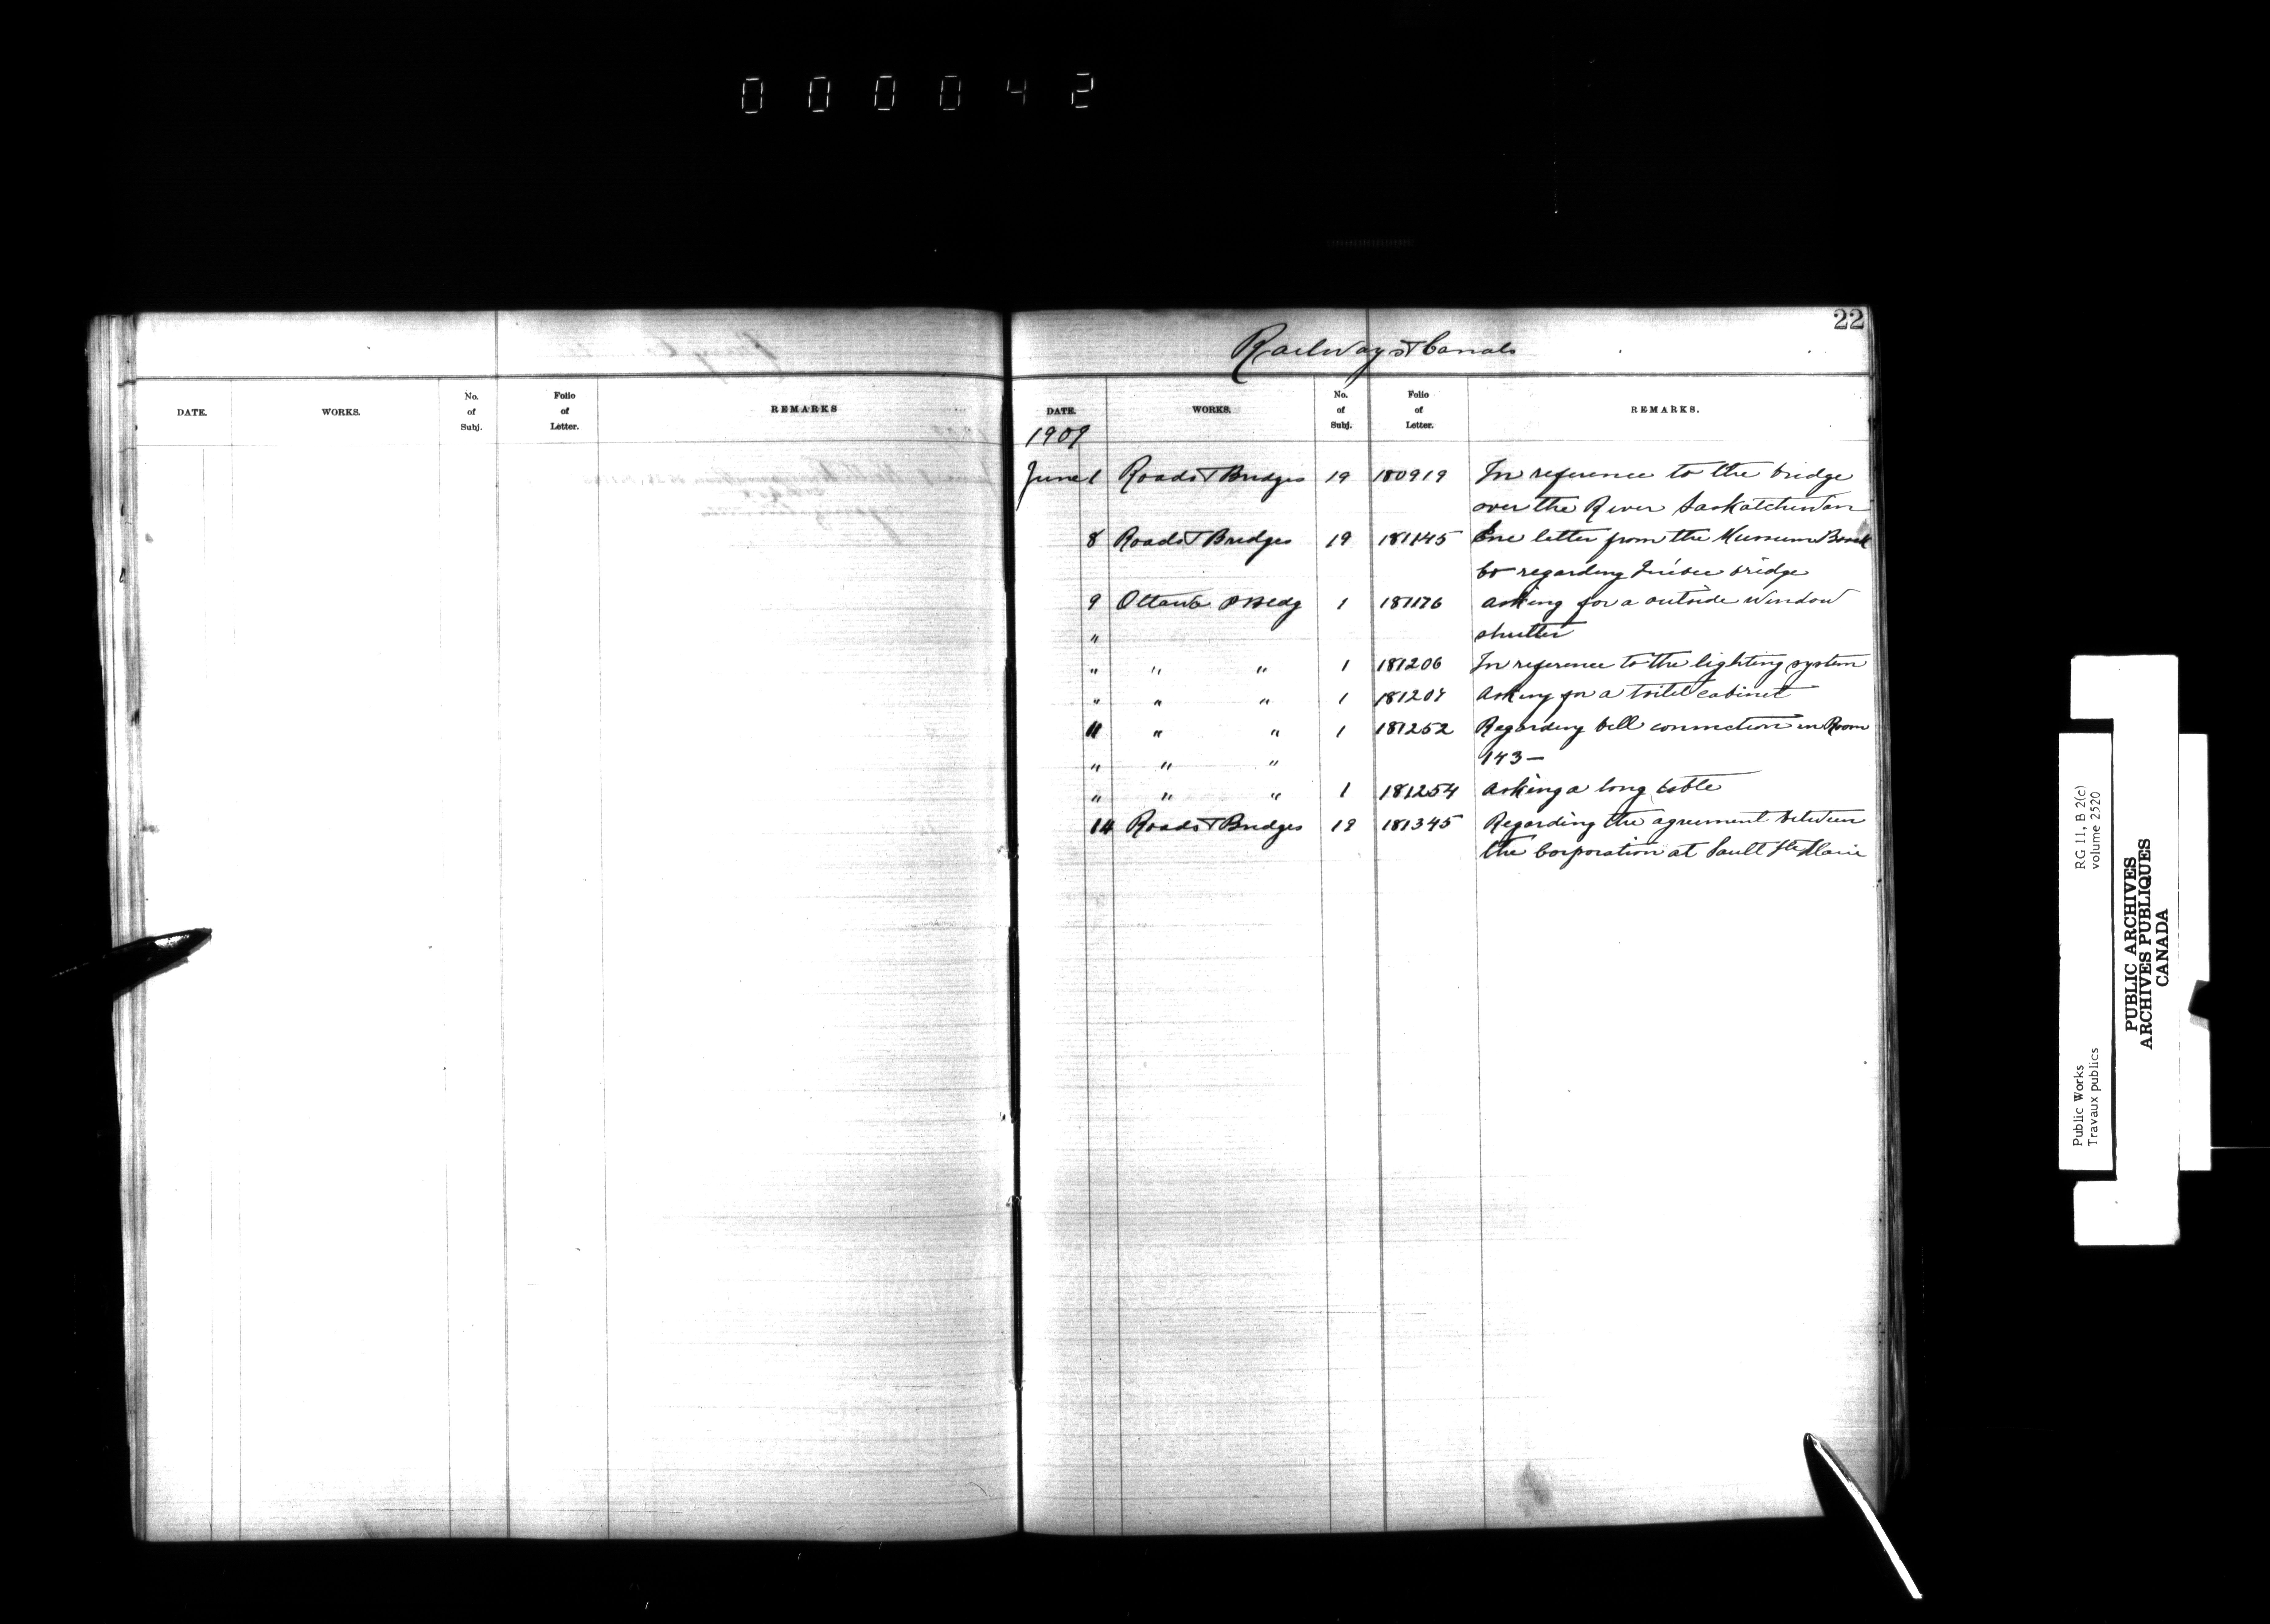 000042
22
Railways & Canals
DATE. WORKS. No. of Subj. Folio of Letter. REMARKS
DATE. WORKS. No. of Subj. Folio of Letter. REMARKS.
1909
June 1 Roads & Bridges 19 180919 In reference to the bridge
over the River Saskatchewan
8 Roads & Bridges 19 181145 Enc letter from the
Co regarding Quebec bridge
9 Ottawa P Bldg 1 181176 asking for a outside window
" shutter
" " " 1 181206 In reference to the lighting system
" " " 1 181207 asking for a toilet cabinet
11 " " 1 181252 Regarding bell connection in Room
" " " 143 -
" " " 1 181254 asking a long table
14 Roads & Bridges 19 181345 Regarding the agreement between
the Corporation at Sault Ste Marie
Public Works RG 11, B 2(c)
Travaux publics volume 2520
PUBLIC ARCHIVES
ARCHIVES PUBLIQUES
CANADA